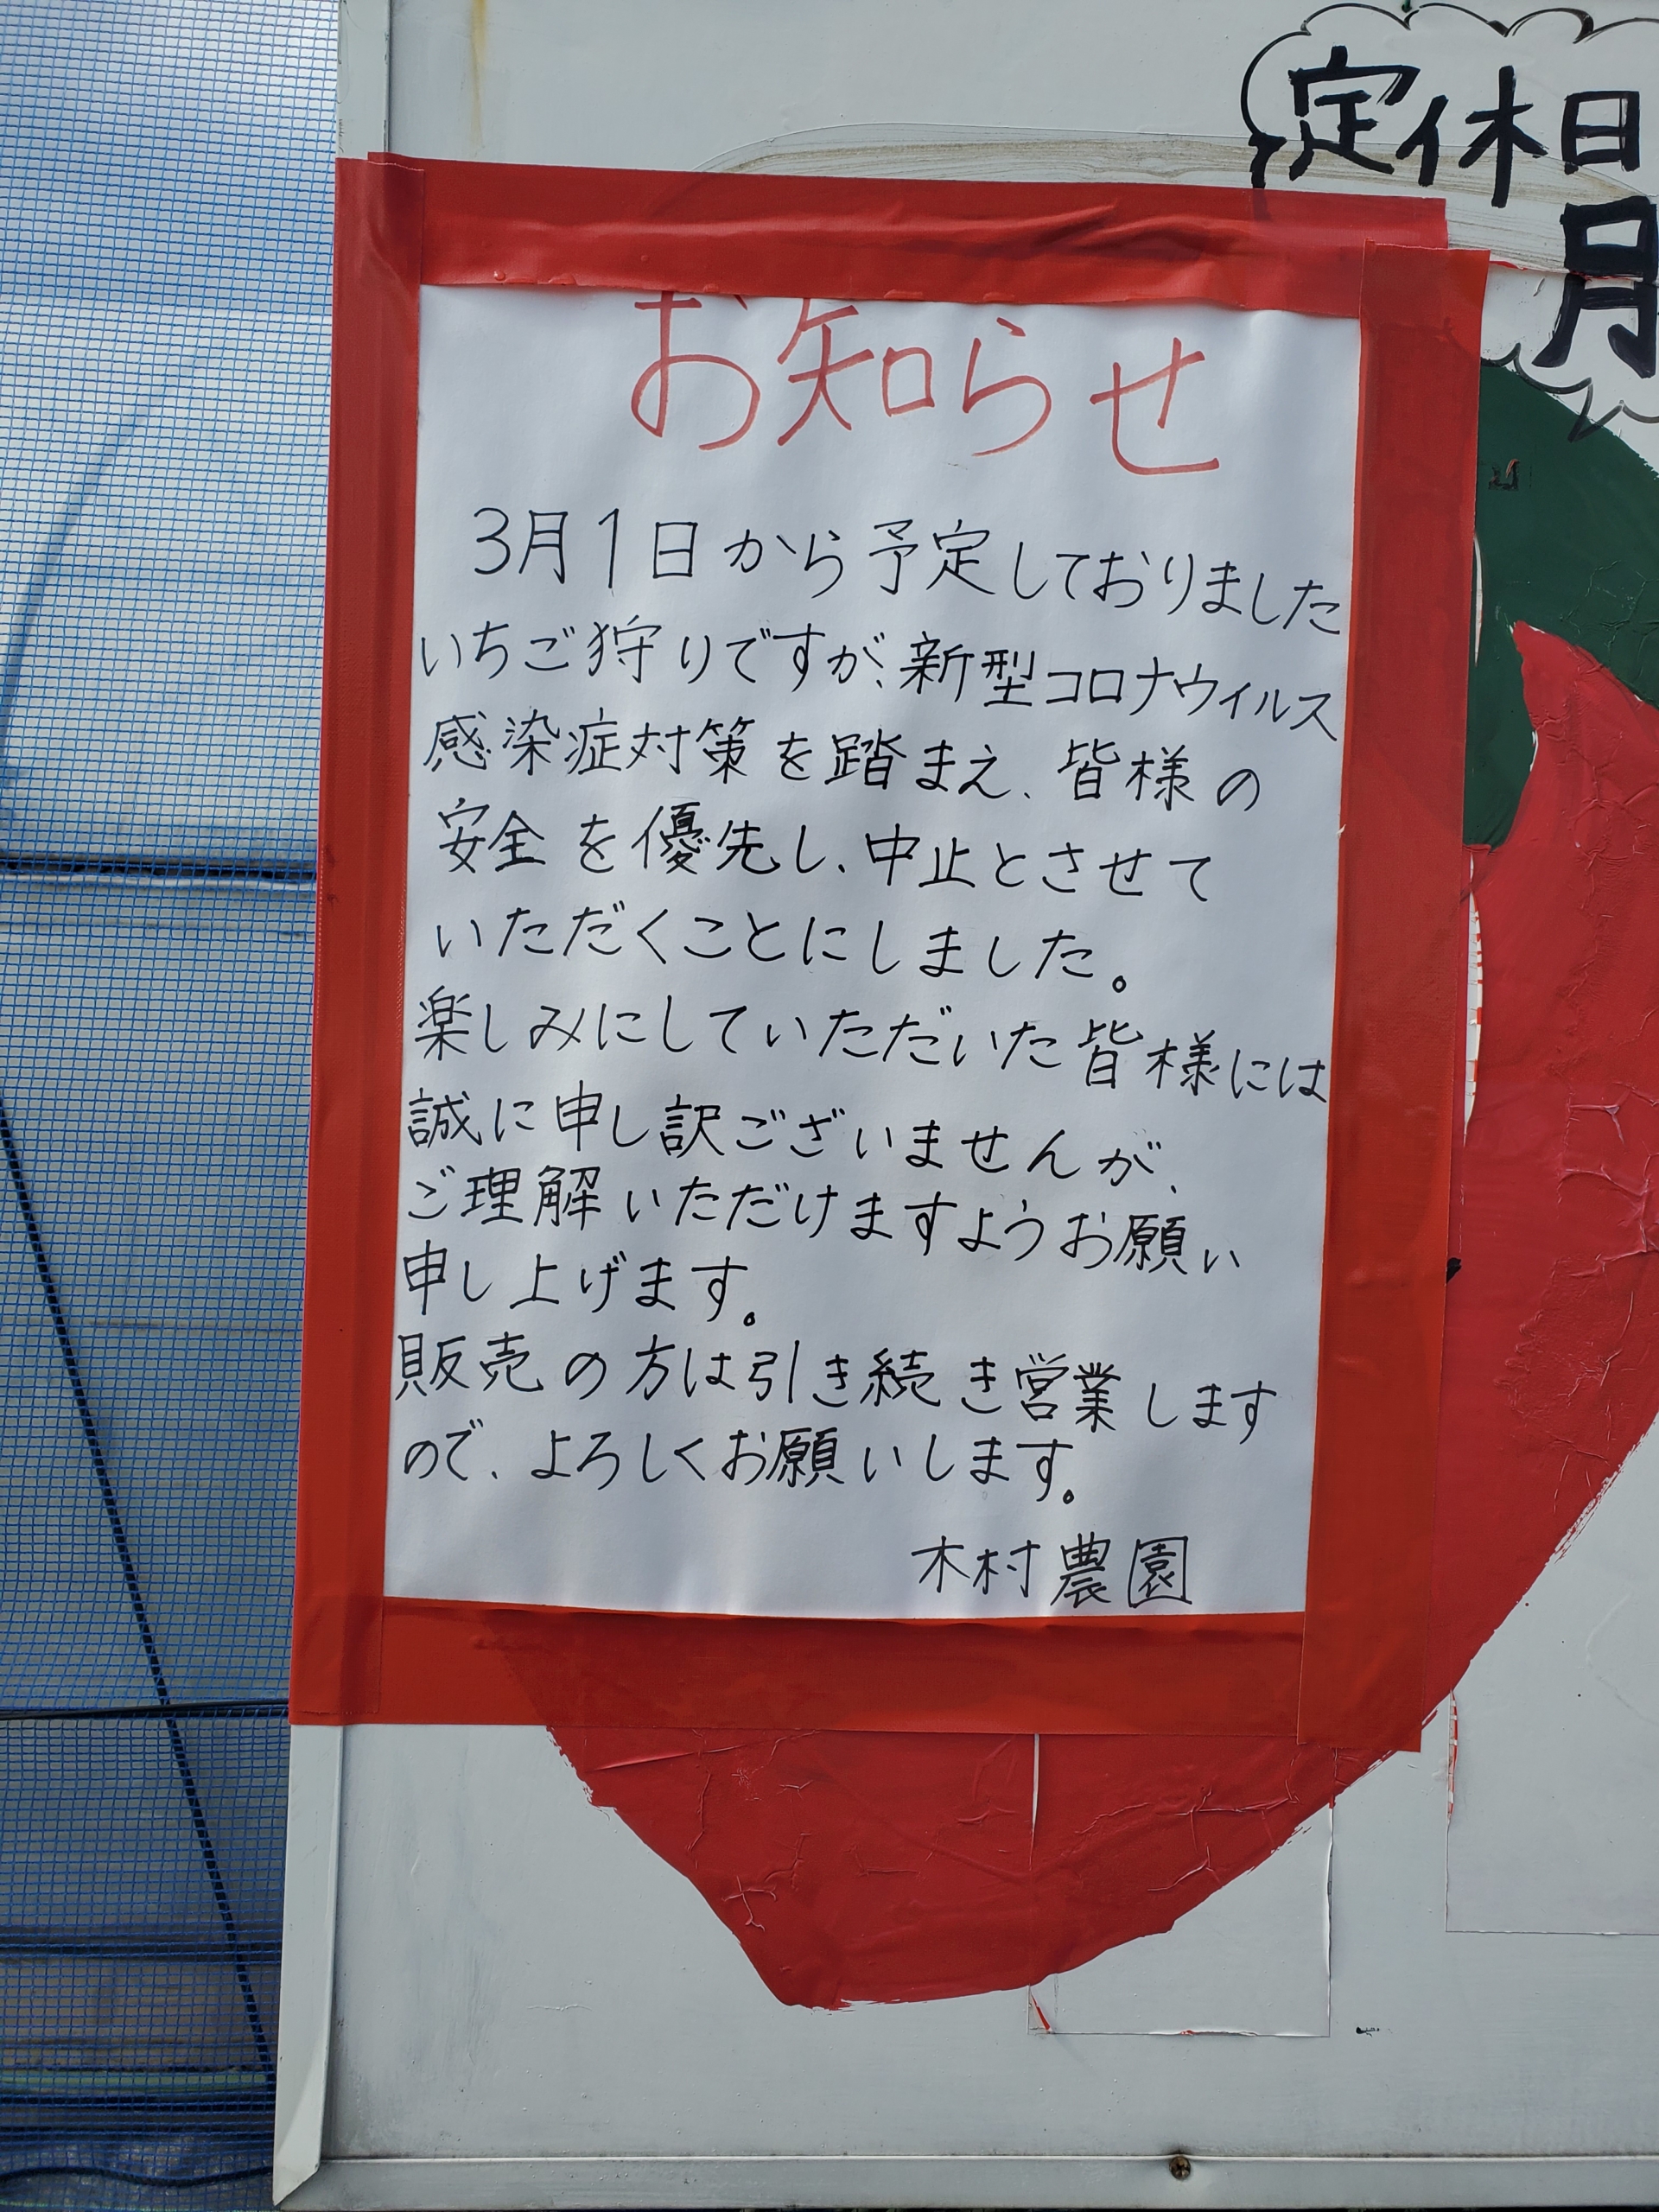 定休日
月
お知らせ
3月1日から予定しておりました
いちご狩りですが、新型コロナウィルス
感染症対策を踏まえ、皆様の
安全を優先し、中止とさせて
いただくことにしました。
楽しみにしていただいた皆様には
誠に申し訳ございませんが、
ご理解いただけますようお願い
申し上げます。
販売の方は引き続き営業します
ので、よろしくお願いします。
木村農園